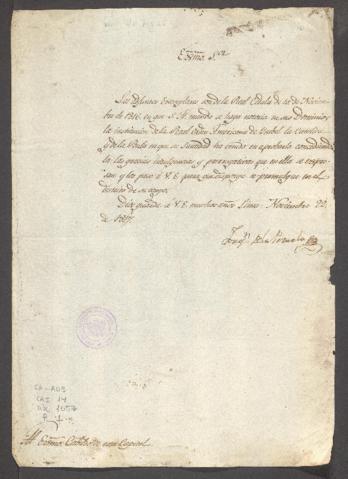 Exmo. Sor.
Los adjuntos Exemplares son de la Real Cedula de 20 de Noviem-
bre de 1816. en que S. M. manda se haga notoria en sus Dominios
la institucion de la Real Orden Americana de Isabel la Catolica
y de la Bula en que su Santidad ha tenido en aprobarla concediendo
las gracias, indulgencias y prerrogativas que en ella se expre-
san y los paso á V. E. para que se en el
distrito de su cargo.
Dios guarde á V. E. muchos años Lima. Noviembre 22,
de 1817.
Joaqn. de la Pezuela
CA-AD3
CAJ 14
DOC 1057
F. 1
Al Exmo. Cabildo de esta Capital